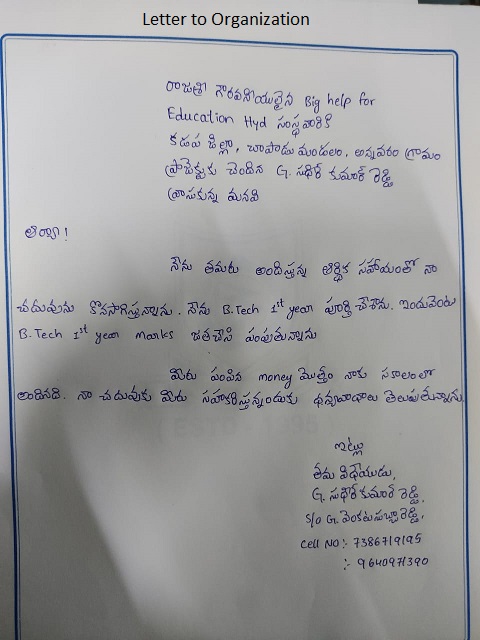 Letter to Organization
రాజశ్రీ గౌరవనీయులైన Big help for
Education Hyd సంస్థవారికి
కడప జిల్లా, చాపాడు మండలం, అన్నవరం గ్రామం
ప్రాజెక్టుకు చెందిన G. సుధీర్ కుమార్ రెడ్డి
వ్రాసుకున్న మనవి
ఆర్యా!
నేను తమరు అందిస్తున్న ఆర్థిక సహాయంతో నా
చదువును కొనసాగిస్తున్నాను. నేను B.Tech 1st year పూర్తి చేశాను. ఇందువెంట
B.Tech 1st year marks జతచేసి పంపుతున్నాను
మీరు పంపిన money మొత్తం నాకు సకాలంలో
అందినది. నా చదువుకు మీరు సహకరిస్తున్నందుకు ధన్యవాదాలు తెలుపుతున్నాను
ఇట్లు
తమ విధేయుడు,
G. సుధీర్ కుమార్ రెడ్డి.
S/o G. వెంకటసుబ్బారెడ్డి.
Cell NO:- 7386719195
:- 9640971390